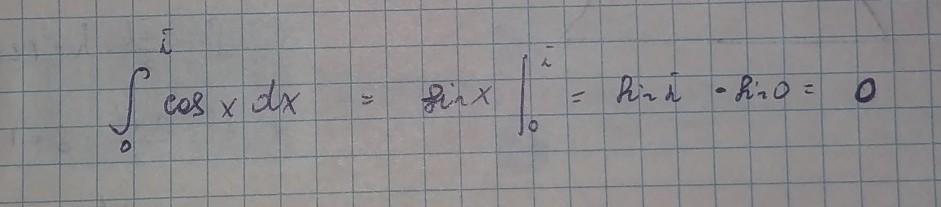 ∫₀^π cos x dx = sin x |₀^π = sin π - sin 0 = 0